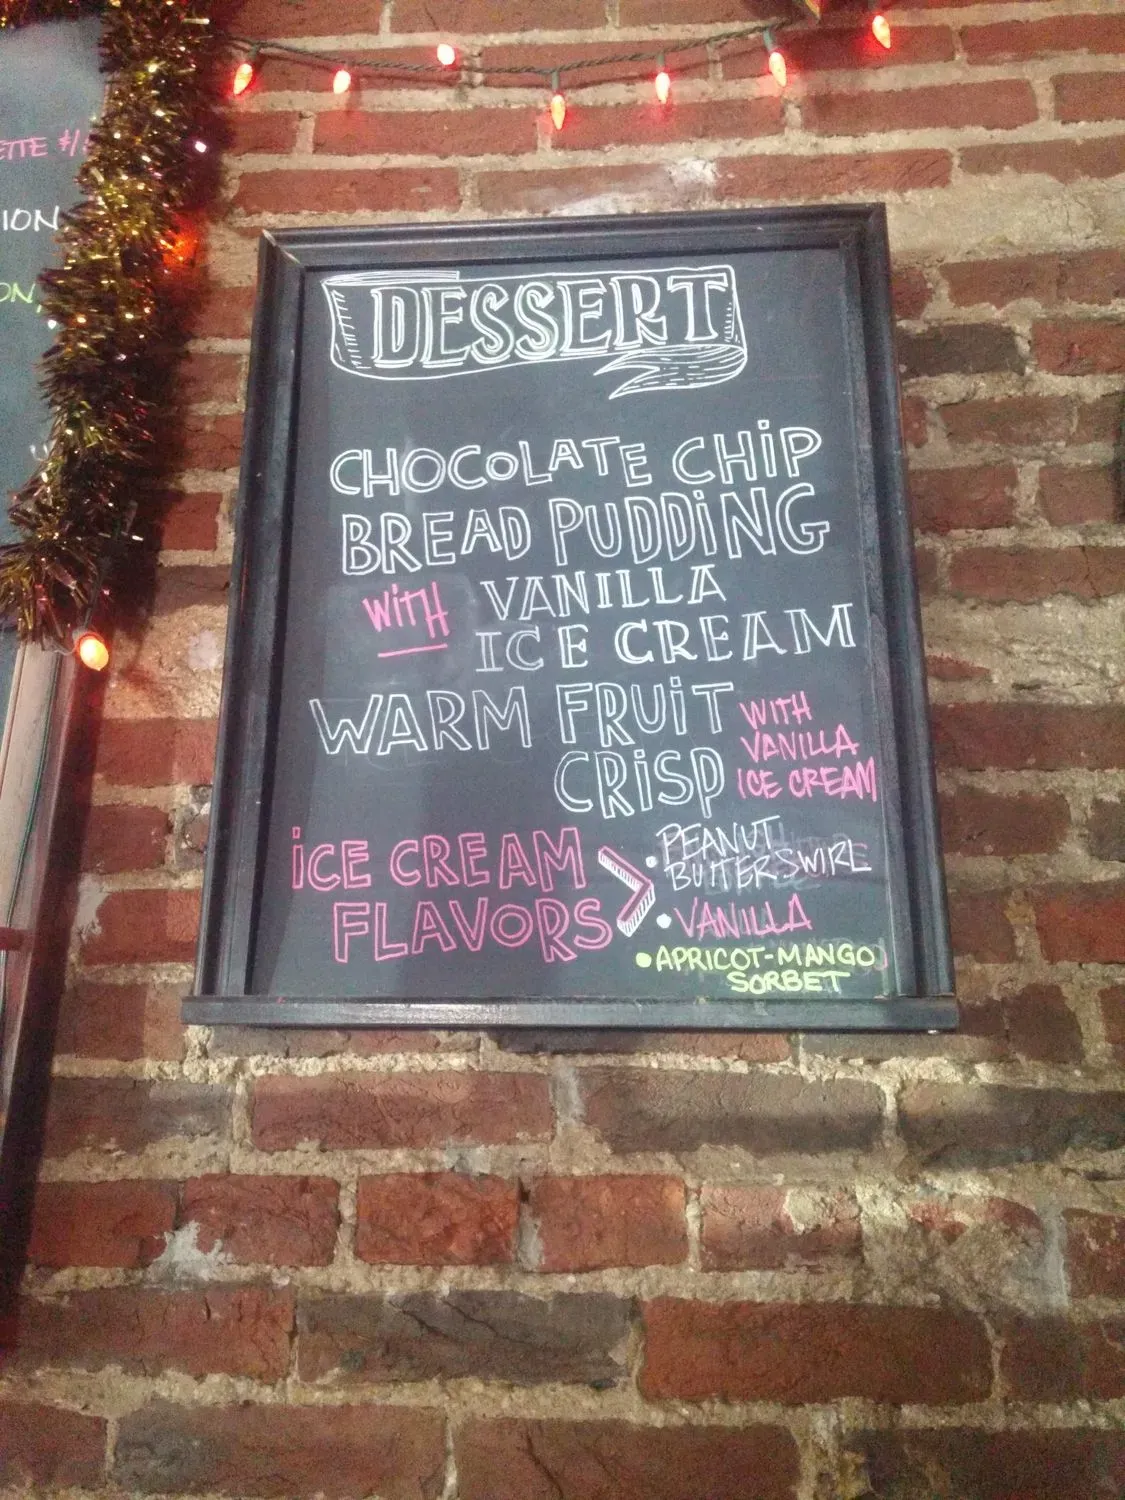 ION
DESSERT
CHOCOLATE CHiP
BREAD PUDDiNG
WiTH VANILLA
ICE CREAM
WARM FRUiT
CRiSP
WITH
VANILLA
ICE CREAM
iCE CREAM
FLAVORS
• PEANUT
BUTTERSWIRL
• VANILLA
• APRICOT-MANGO
SORBET